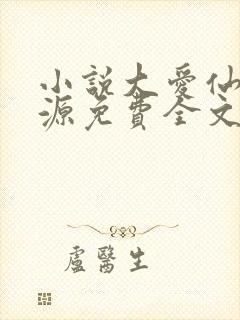 小說大愛仙
源免費全文
盧醫生